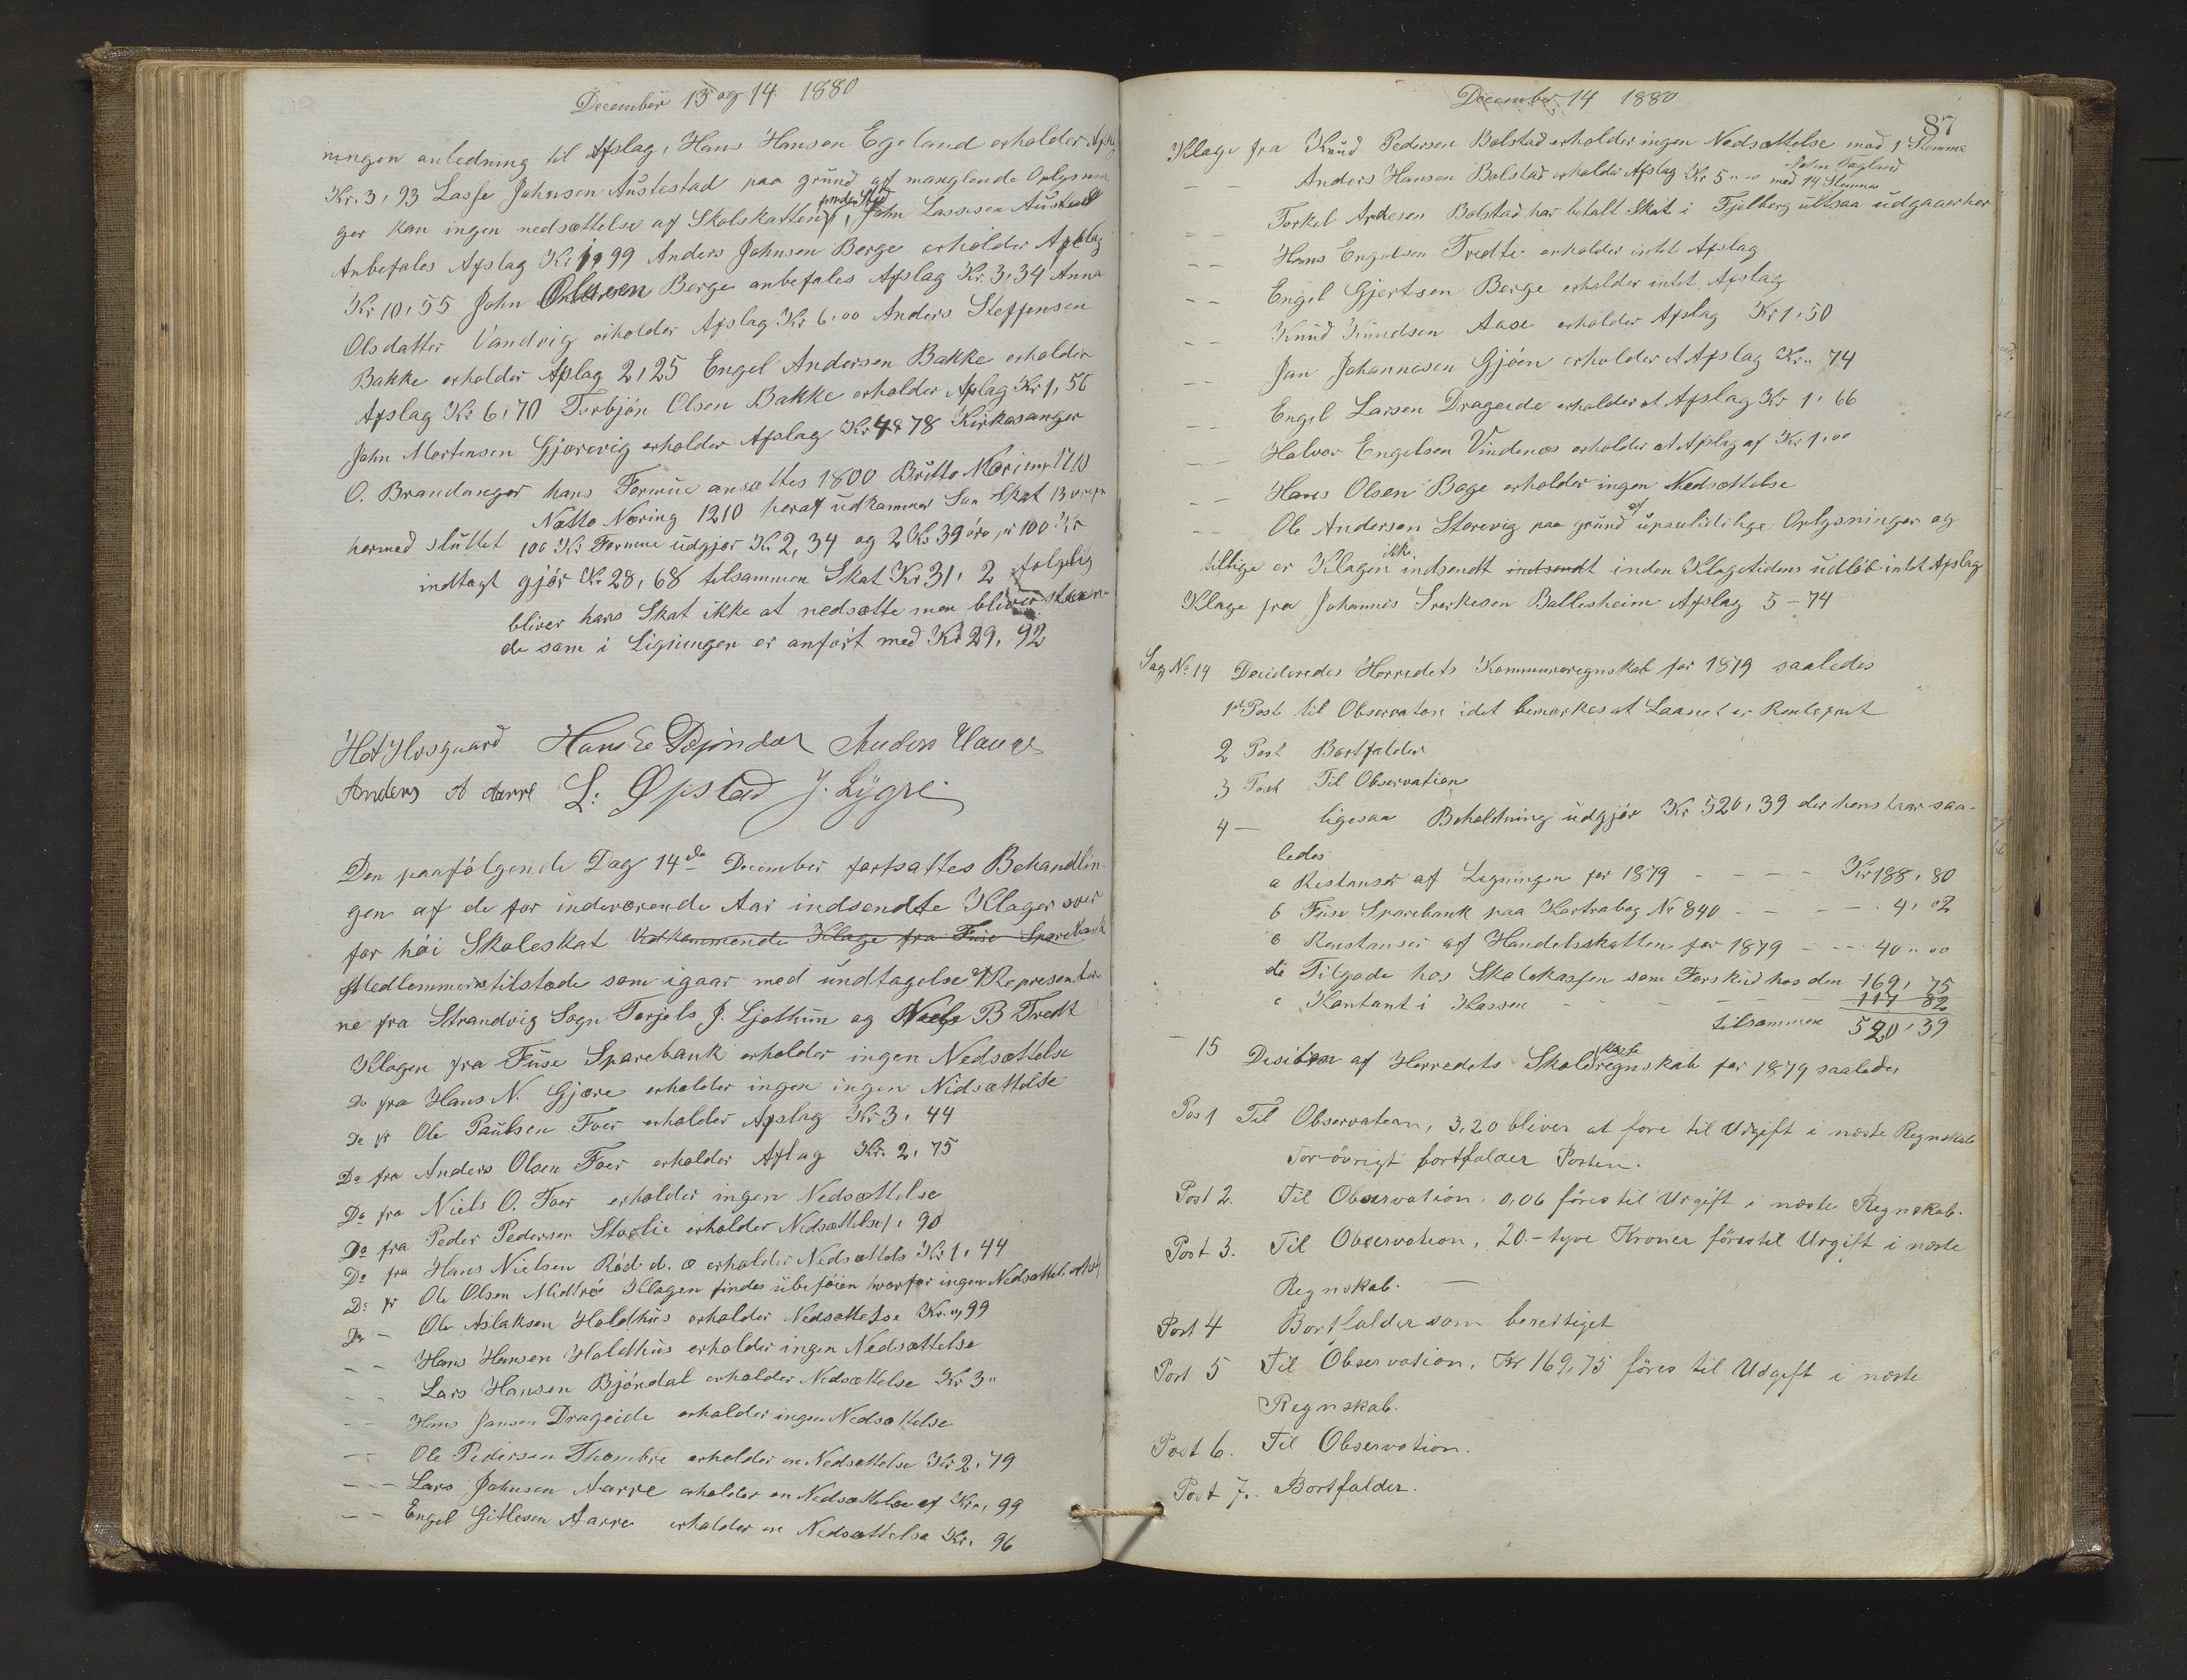 December 13 og 14 1880
ningen anledning til Afslag, Hans Hansen Egeland erholder Afslag
Kr. 3,93 Lasse Johnsen Austestad paa grund af manglende Oplysnin
ger kan ingen nedsættelse af Skolskatten finde Sted, John Lassesen Austestad
Anbefales Afslag Kr 1,99 Anders Johnsen Berge erholder Afslag
Kr 10,55 John Olsen Berge anbefales Afslag Kr. 3,34 Anna
Olsdatter Vandvig erholder Afslag Kr 6,00 Anders Steffensen
Bakke erholder Afslag 2,25 Engel Andersen Bakke erholder
Afslag Kr 6,70 Torbjøn Olsen Bakke erholder Afslag Kr 1,56
John Mortensen Gjærevig erholder Afslag Kr 4,78 Kirkesanger
O. Brandanger hans Formue ansættes 1800 Brutto Næring
Netto Næring 1210 heraf udkommer Skat 13
hermed sluttet 100 Kr Formue udgjør Kr 2,34 og 2 Kr 39 øre pr 100 Kr
indtagt gjør Kr. 28,68 tilsammen Skat Kr 31,2 følgelig
bliver hans Skat ikke at nedsætte men bliver staaen
de som i Ligningen er anført med Kr 29,92
Hans E Bjøndal Anders Hauge
Anders A Aarre L. Øpstad J. Lygre
Den paafølgende Dag 14de December fortsattes Behandlin
gen af de for indeværende Aar indsendte Klager over
for høi Skoleskat Vedkommende Klage fra Fuse Sparebank
Medlemmerne tilstæde som igaar med undtagelse af Representer
ne fra Strandvig Sogn Torjels J. Ljothun og Niels B Tredt
Klagen fra Fuse Sparebank erholder ingen Nedsættelse
Do fra Hans N. Gjære erholder ingen ingen Nidsættelse
Do fr Ole Paulsen Foer erholder Afslag Kr 3,44
Do fra Anders Olsen Foer erholder Afslag Kr. 2,75
Do fra Niels O. Foer erholder ingen Nedsættelse
Do fra Peder Pedersen Storlie erholder Nedsættelse 1,90
Do fra Hans Nielsen Rød d. æ erholder Nedsættels Kr 1,44
Do fr Ole Olsen Midtrø Klagen findes ubeføien hvorfor ingen Nedsættelse
Do - Ole Aslaksen Holdhus erholder Nedsættelse Kr. ",99
- - Hans Hansen Holdhus erholder ingen Nedsættelse
- - Lars Hansen Bjørndal erholder Nedsættelse Kr 3 "
- - Hans Jansen Drageide erholder ingen Nedsættelse
- - Ole Pedersen Thombre erholder en Nedsættelse Kr 2,79
- - Lars Johnsen Aarre erholder en Nedsættelse af Kr ", 99
- - Engel Gitlesen Aarre erholder en Nedsættelse Kr. 96
December 14 1880
87
Klage fra Knud Pedersen Bolstad erholder ingen Nedsættelse mod 1 Stemme
John Tegland
- - Anders Hansen Bolstad erholder Afslag Kr 5 " 00 med 14 Stemmer
- - Torkel Bolstad har betalt Skat i Fjelberg altsaa udgaaer her
- - Hans Engelsen Tredte erholder intet Afslag
- - Engel Gjertsen Berge erholder intet Afslag
- - Knud Knudsen Aase erholder Afslag Kr 1,50
- - Jan Johannesen Gjøen erholder et Afslag Kr " 74
- - Engel Larsen Drageide erholder et Afslag Kr 1,66
- - Halvor Engelsen Vindenes erholder et Afslag af Kr 1,00
- - Hans Olsen Bage erholder ingen Nedsættelse
- - Ole Andersen Storevig paa grund af upaalidelige Oplysninger og
tillige er Klagen ikke indsendt indsendt inden Klagetidens udløb intet Afslag
Klage fra Johannes Sverkesen Ballesheim Afslag 5 - 74
Sag No 14 Desideredes Herredets Kommuneregnskab for 1879 saaledes
1st Post til Observation idet bemærkes at Laanet er Rentefrit
2 Post Bortfalder
3 Post Til Observation
4 - ligesaa Beholdning udgjør Kr 520,39 der henstaar saa-
ledes
a Restanser af Ligningen for 1879 - - - - Kr 188,80
b Fuse Sparebank paa Kontrabog No 840 - - - - 4,02
c Restanser af Handelsskatten for 1879 - - - 40 " 00
d Tilgode hos Skolekassen som Forskud hos den 169,75
e Kontant i Kassen - - - - - 117 82
tilsammen 520,39
- 15 Desition af Herredets Skolekasseregnskab for 1879 saaledes
Post 1 Til Observation, 3,20 bliver at føre til Udgift i næste Regnskab
Forøvrigt bortfalder Posten.
Post 2. Til Observation. 0,06 føres til Urgift i næste Regnskab.
Post 3. Til Observation, 20.- tyve Kroner føres til Urgift i næste
Regnskab. -
Post 4 Bortfalder som berettiget
Post 5 Til Observation. Kr 169,75 føres til Udgift i næste
Regnskab.
Post 6. Til Observation.
Post 7. Bortfalder.